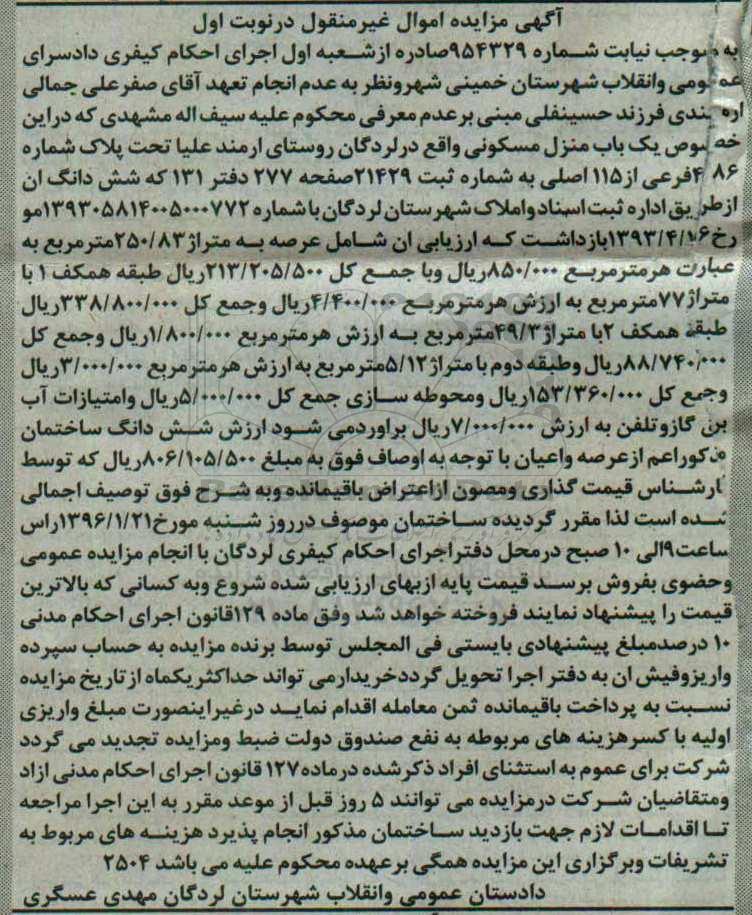 آگهی مزایده اموال غیرمنقول درنوبت اول
به موجب نیابت شماره ۹۵۴۳۲۹صادره ازشعبه اول اجرای احکام کیفری دادسرای
عمومی وانقلاب شهرستان خمینی شهرونظر به عدم انجام تعهد آقای صفرعلی جمالی
ندی فرزند حسینفلی مبنی برعدم معرفی محکوم علیه سیف اله مشهدی که دراین
خصوص یک باب منزل مسکونی واقع درلردگان روستای ارمند علیا تحت پلاک شماره
فرعی از۱۱۵ اصلی به شماره ثبت ۲۱۴۲۹صفحه ۲۷۷ دفتر ۱۳۱ که شش دانگ ان
ازطریق اداره ثبت اسناد واملاک شهرستان لردگان با شماره ۱۳۹۳۰۵۸۱۴۰۰۵۰۰۰۷۷۲مو
رخ۱۳۹۳/۴/۱۶بازداشت که ارزیابی ان شامل عرصه به متراژ ۲۵۰/۸۳مترمربع به
عبارت هرمترمربع ۸۵۰/۰۰۰ریال وبا جمع کل ۲۱۳/۲۰۵/۵۰۰ریال طبقه همکف ۱ با
متراژ ۷۷مترمربع به ارزش هرمترمربع ۴/۴۰۰/۰۰۰ریال وجمع کل ۳۳۸/۸۰۰/۰۰۰ریال
طبقه همکف ۲با متراژ ۴۹/۳مترمربع به ارزش هرمترمربع ۱/۸۰۰/۰۰۰ریال وجمع کل
۸۸/۷۴۰/۰۰۰ریال وطبقه دوم با متراژ ۵/۱۲مترمربع به ارزش هرمترمربع ۳/۰۰۰/۰۰۰ریال
وجمع کل ۱۵۳/۳۶۰/۰۰۰ریال ومحوطه سازی جمع کل ۵/۰۰۰/۰۰۰ریال وامتیازات آب
برق گازوتلفن به ارزش ۷/۰۰۰/۰۰۰ریال براوردمی شود ارزش شش دانگ ساختمان
مذکوراعم ازعرصه واعیان با توجه به اوصاف فوق به مبلغ ۸۰۶/۱۰۵/۵۰۰ریال که توسط
کارشناس قیمت گذاری ومصون ازاعتراض باقیمانده وبه شرح فوق توصیف اجمالی
شده است لذا مقرر گردیده ساختمان موصوف درروز شنبه مورخ۱۳۹۶/۱/۲۱راس
ساعت۹الی ۱۰ صبح درمحل دفتراجرای احکام کیفری لردگان با انجام مزایده عمومی
وحضوی بفروش برسد قیمت پایه ازبهای ارزیابی شده شروع وبه کسانی که بالاترین
قیمت را پیشنهاد نمایند فروخته خواهد شد وفق ماده ۱۲۹قانون اجرای احکام مدنی
۱۰ درصدمبلغ پیشنهادی بایستی فی المجلس توسط برنده مزایده به حساب سپرده
واریزوفیش ان به دفتر اجرا تحویل گرددخریدارمی تواند حداکثریکماه ازتاریخ مزایده
نسبت به پرداخت باقیمانده ثمن معامله اقدام نماید درغیراینصورت مبلغ واریزی
اولیه با کسرهزینه های مربوطه به نفع صندوق دولت ضبط ومزایده تجدید می گردد
شرکت برای عموم به استثنای افراد ذکرشده درماده۱۲۷ قانون اجرای احکام مدنی ازاد
ومتقاضیان شرکت درمزایده می توانند ۵ روز قبل از موعد مقرر به این اجرا مراجعه
تا اقدامات لازم جهت بازدید ساختمان مذکور انجام پذیرد هزینه های مربوط به
تشریفات وبرگزاری این مزایده همگی برعهده محکوم علیه می باشد ۲۵۰۴
دادستان عمومی وانقلاب شهرستان لردگان مهدی عسگری